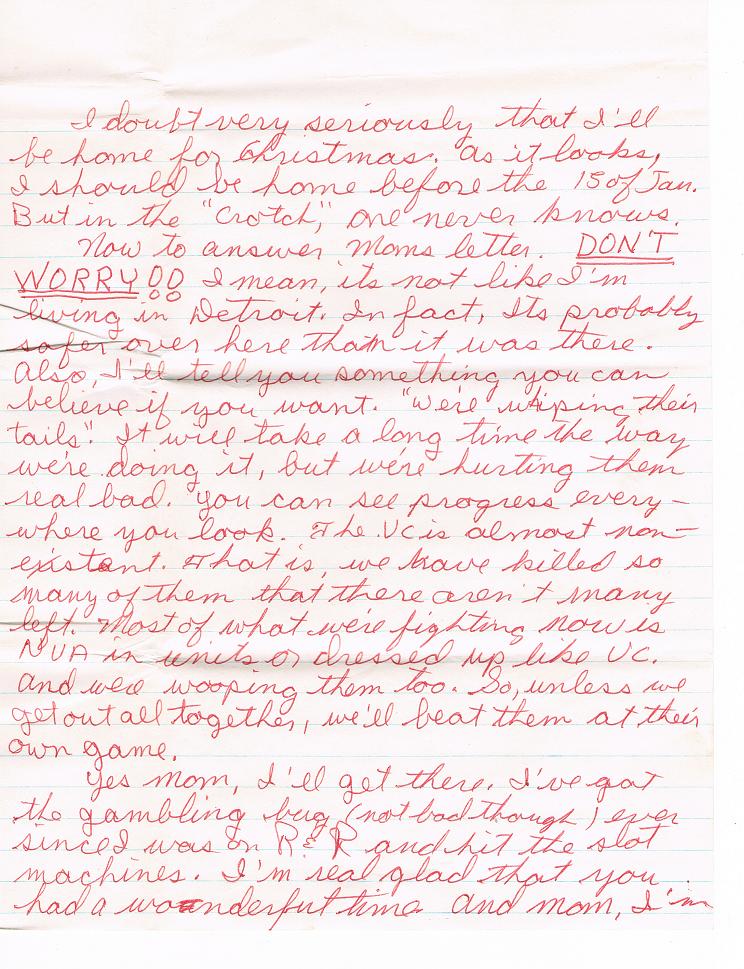 I doubt very seriously that I'll
be home for Christmas. As it looks,
I should be home before the 15 of Jan.
But in the "Crotch," one never knows.
Now to answer Moms letter. DON'T
WORRY!! I mean, its not like I'm
living in Detroit. In fact, Its probably
safer over here than it was there.
Also, I'll tell you something you can
believe if you want. "We're wiping their
tails". It will take a long time the way
we're doing it, but we're hurting them
real bad. You can see progress every-
where you look. The VC is almost non-
existent. That is, we have killed so
many of them that there aren't many
left. Most of what we're fighting now is
NVA in units or dressed up like VC.
And we're wooping them too. So, unless we
get out all together, we'll beat them at their
own game.
Yes mom, I'll get there. I've got
the gambling bug (not bad though) ever
since I was on R & R and hit the slot
machines. I'm real glad that you
had a wonderful time and mom, I'm